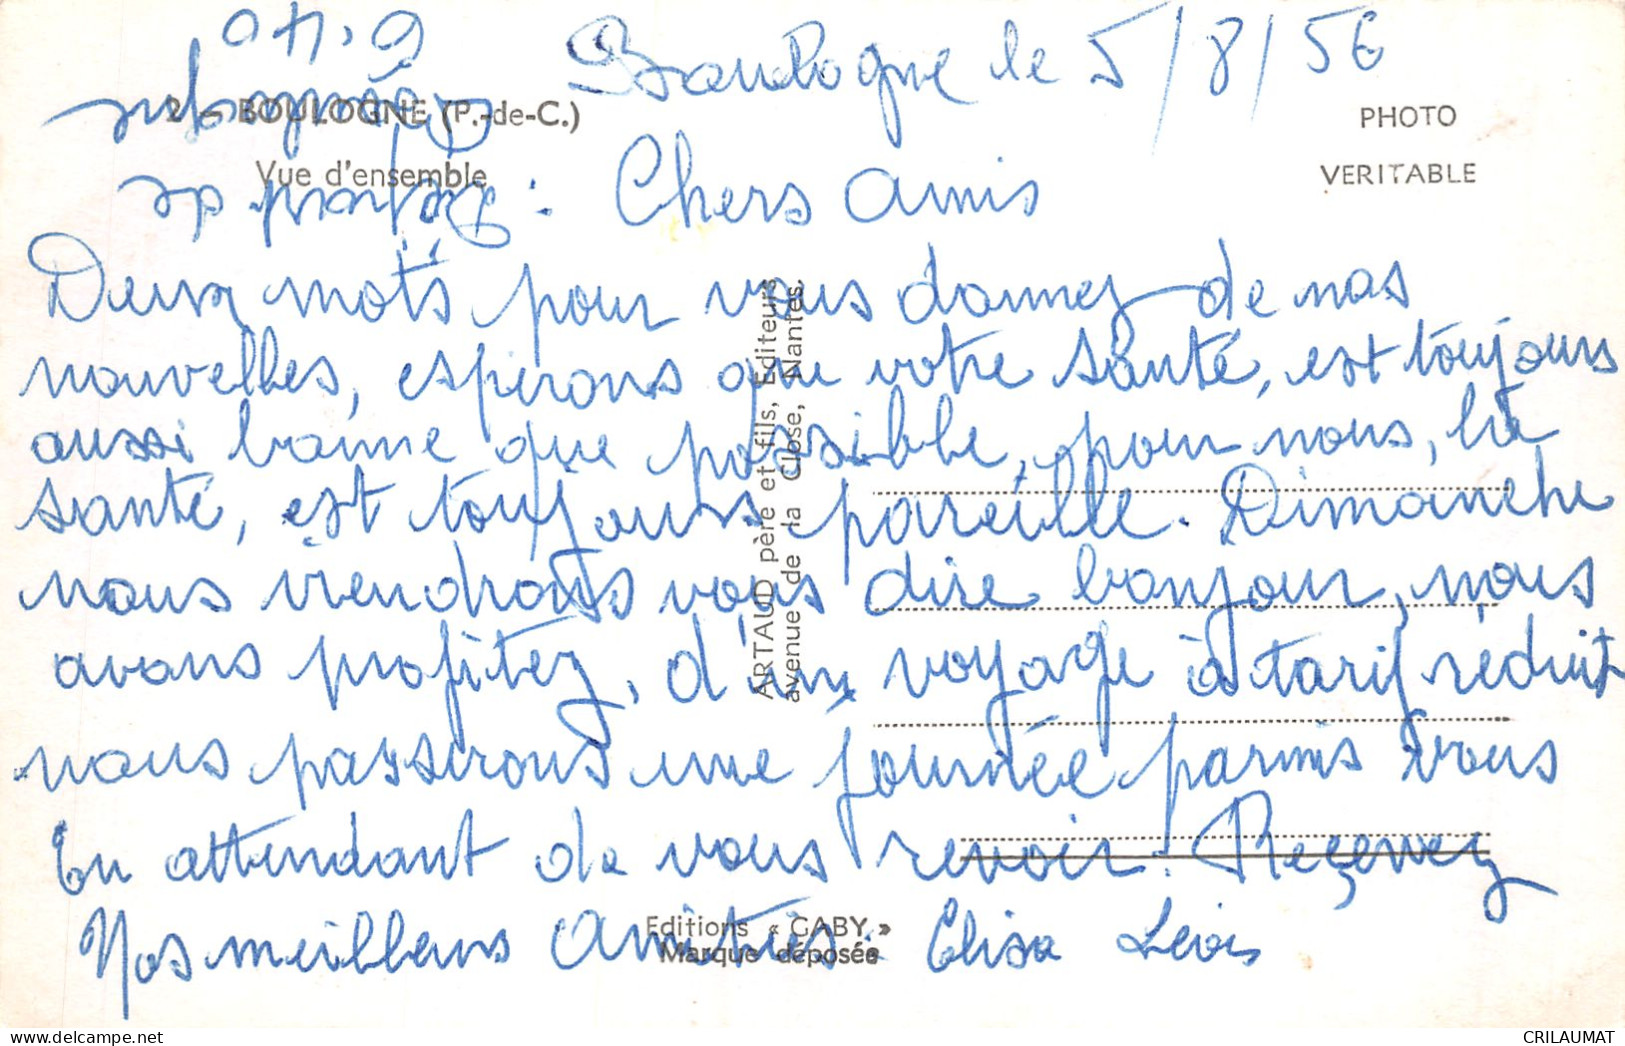 Boulogne le 5/8/56
2 - BOULOGNE (P.-de-C.)
Vue d'ensemble
PHOTO
VERITABLE
Départ de
Boulogne
6.40
Chers amis
Deux mots pour vous donnez de nos
nouvelles, esperons que votre santé, est toujours
aussi bonne que possible, pour nous, la
santé, est toujours pareille. Dimanche
nous viendrons vous dire bonjour, nous
avons profitez, d'un voyage à tarif réduit
nous passerons une journée parmis vous
En attendant de vous revoir. Reçevez
Nos meilleurs Amitiés : Elisa
ARTAUD père et fils, Editeurs
avenue de la Close, Nantes.
Editions « GABY »
Marque déposée
CRILAUMAT